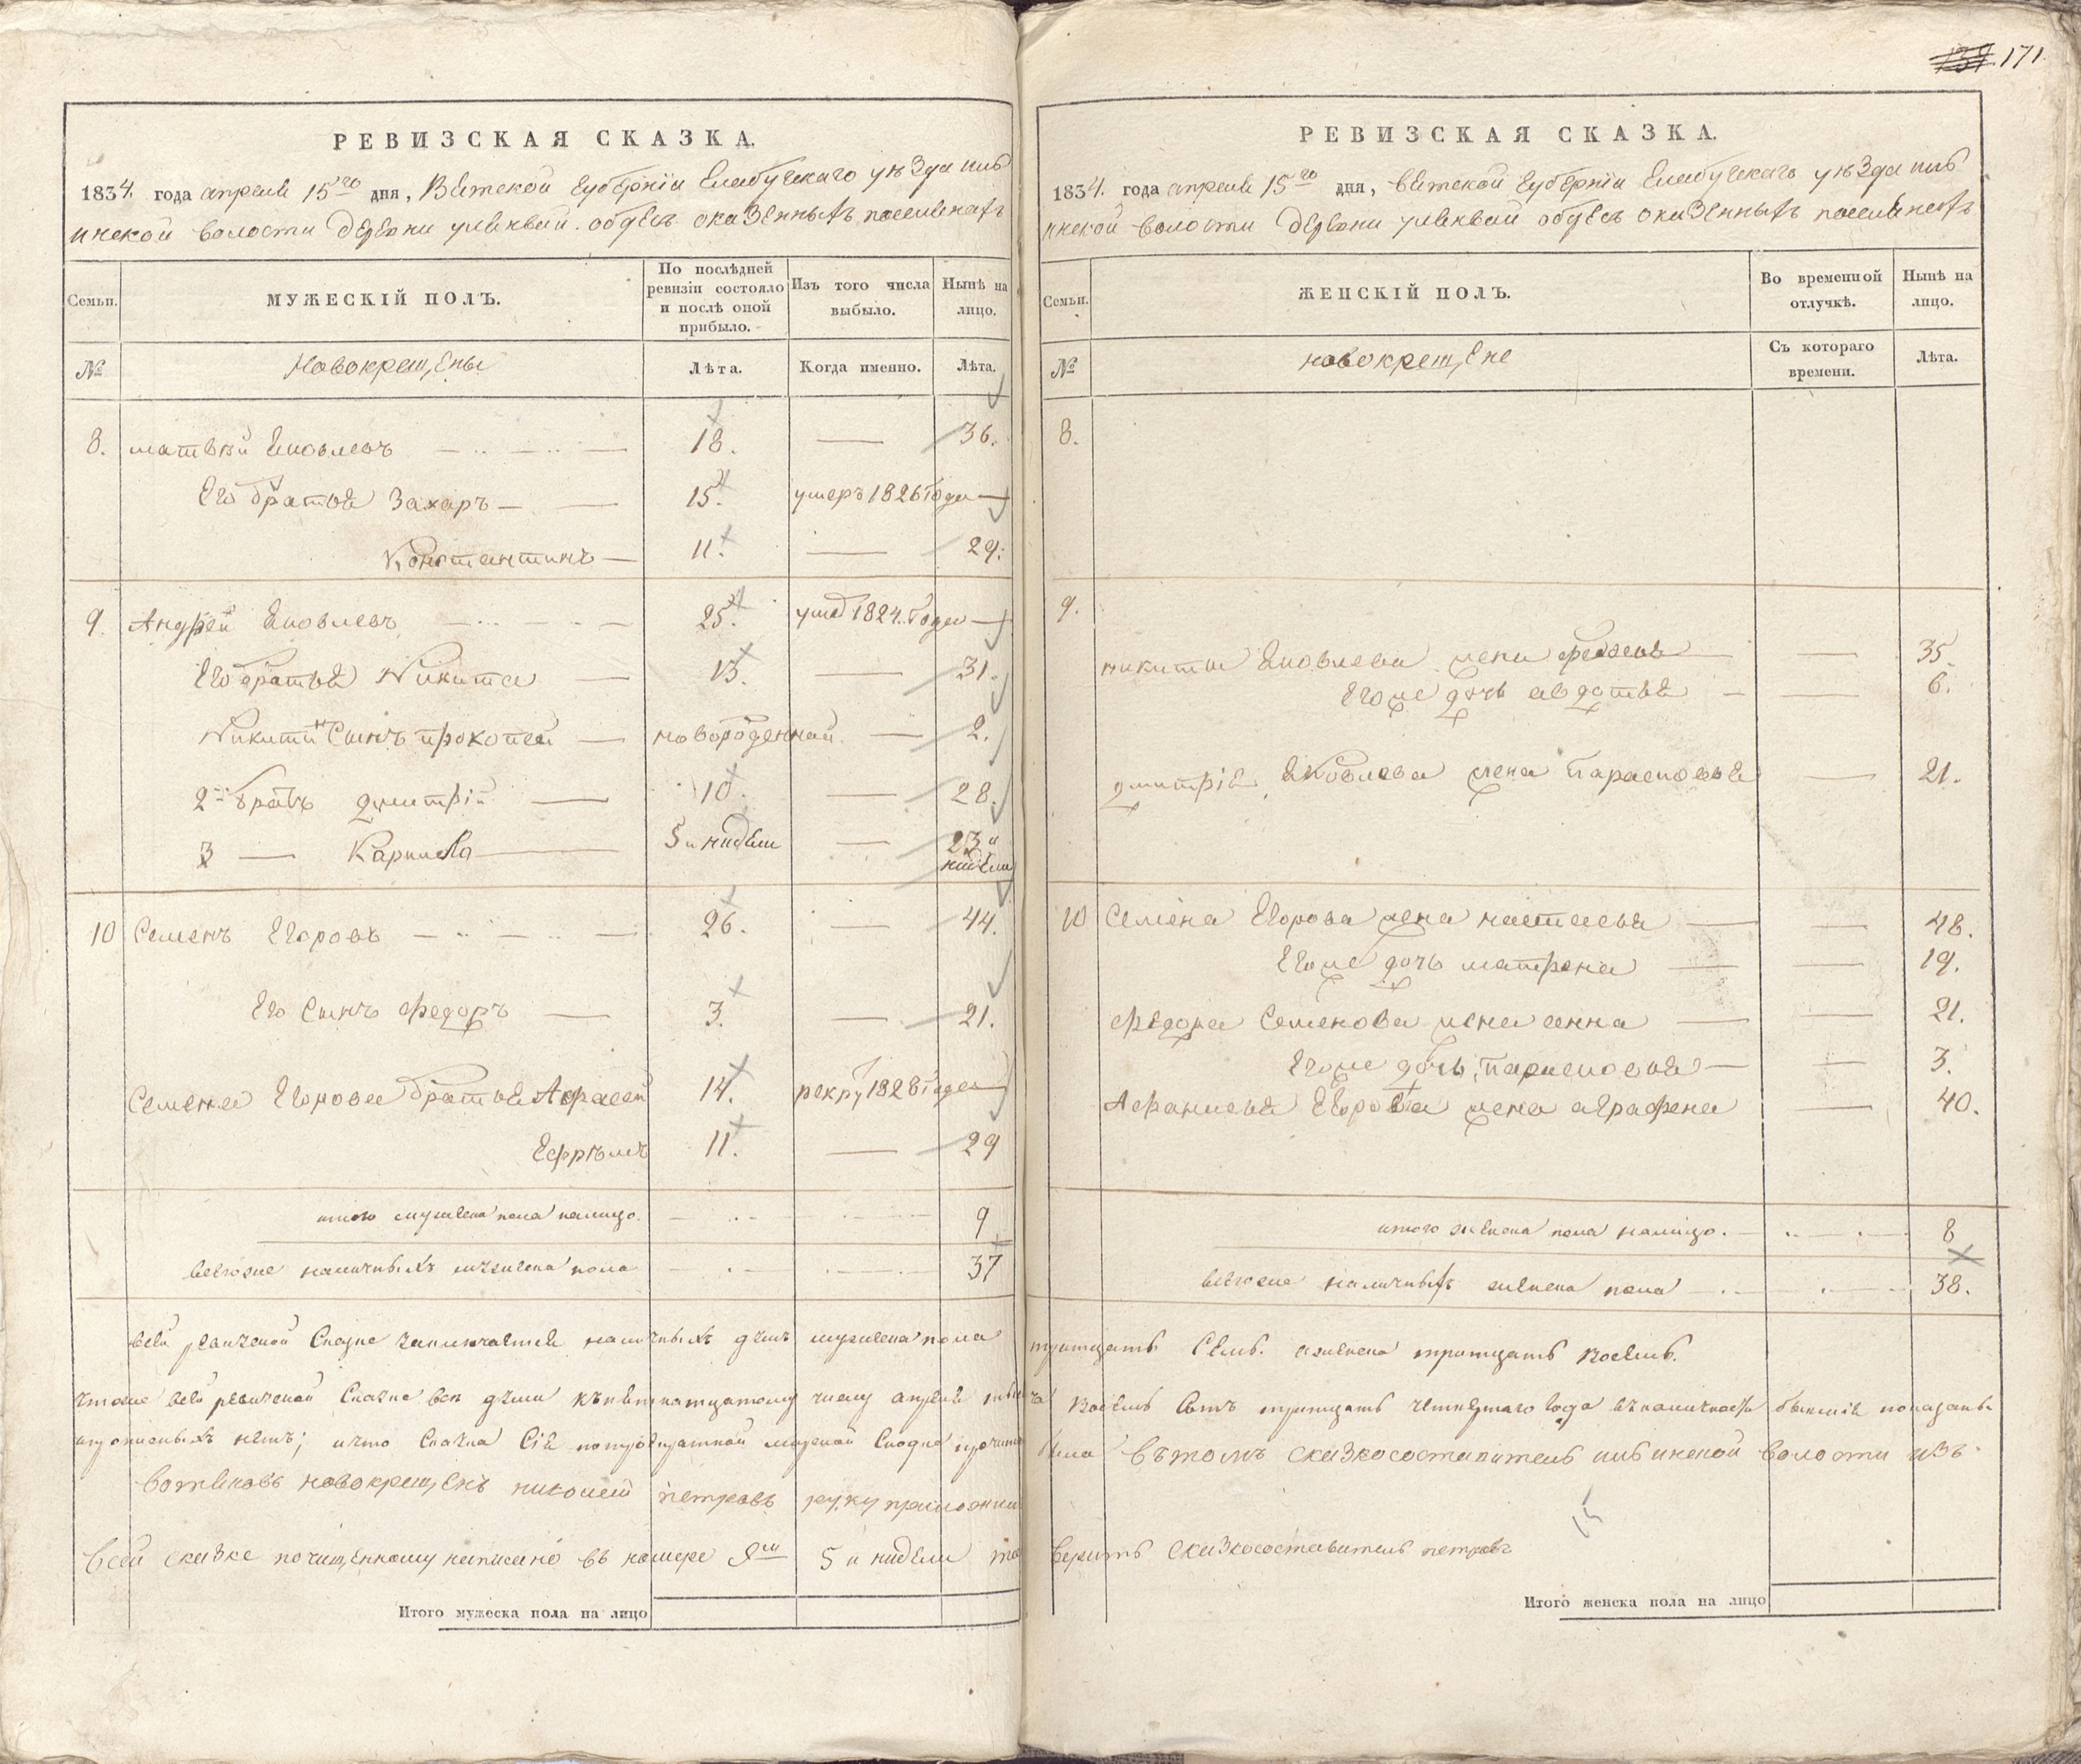 РЕВИЗСКАЯ СКАЗКА.
1834. года апреля 15го дня, Вятской Губернiи Елабугскаго уѣзда пиб
инской волости деревни обџесъ оказенныхъ поселенахъ
Семьи.
МУЖЕСКIЙ ПОЛЪ.
По послѣдней ревизiи состояло и послѣ оной прибыло.
Изъ того числа выбыло.
Нынѣ на лицо.
№
Новокрещены
Лѣта.
Когда именно.
Лѣта.
8. матвѣй Яковлевъ 18. 36.
Его братья Захаръ 15. умеръ 1826 Года
Константинъ 11. 29.
9. Андрей Яковлевъ 25. 1824. Года
Его братья Никита 13. 31.
Никитинъ Сынъ прокопей новорожденной 2.
2й братъ дмитрiй 10. 28.
3 Карнила 5 и нидели 23 и
нидели
10 Семенъ Егоровъ 26. 44.
Его Сынъ Федоръ 3. 21.
Семена Егорова братья 14. рекру 1828 Года
Ефрѣмъ 11. 29
итого мужеска пола налицо. 9
всегоже наличныхъ мужеска пола 37
всей Сказке заключается наличныхъ душъ мужеска пола
сей ревизской Сказке все числу апреля
нѣтъ; что Сказка Сiя
вотяковъ новокрещенъ николай петровъ руку приложил
всей сказке почищенному написано въ номере 9мъ 5 и нидели то
Итого мужеска пола на лицо
139. 171.
РЕВИЗСКАЯ СКАЗКА.
1834. года апреля 15го дня, Вятской Губернiи Елабугскаго уѣзда пиб
инской волости деревни обџесъ оказенныхъ поселенахъ
Семьи.
ЖЕНСКIЙ ПОЛЪ.
Во временной отлучкѣ.
Нынѣ на лицо.
№
новокрещене
Съ котораго времени.
Лѣта.
8.
9.
никиты Яковлева жена 35.
Егоже дочь авдотья 6.
дмитрiя Яковлева жена Парасковья 21.
10 Семена Егорова жена настасья 48.
Егоже дочь матрена 19.
Федора Семенова жена анна 21.
Егоже дочь парасковья 3.
Афанасья Егорова жена аграфена 40.
итого женска пола налицо. 8
всегоже наличныхъ женска пола 38.
тритцать Семь. аженска тритцать восемь.
восемь Сотъ тритцать четвертаго года бывшiя показаны
вътомъ сказкосоставитель пибинской волости изъ
веритъ сказкосоставитель петровъ
Итого женска пола на лицо